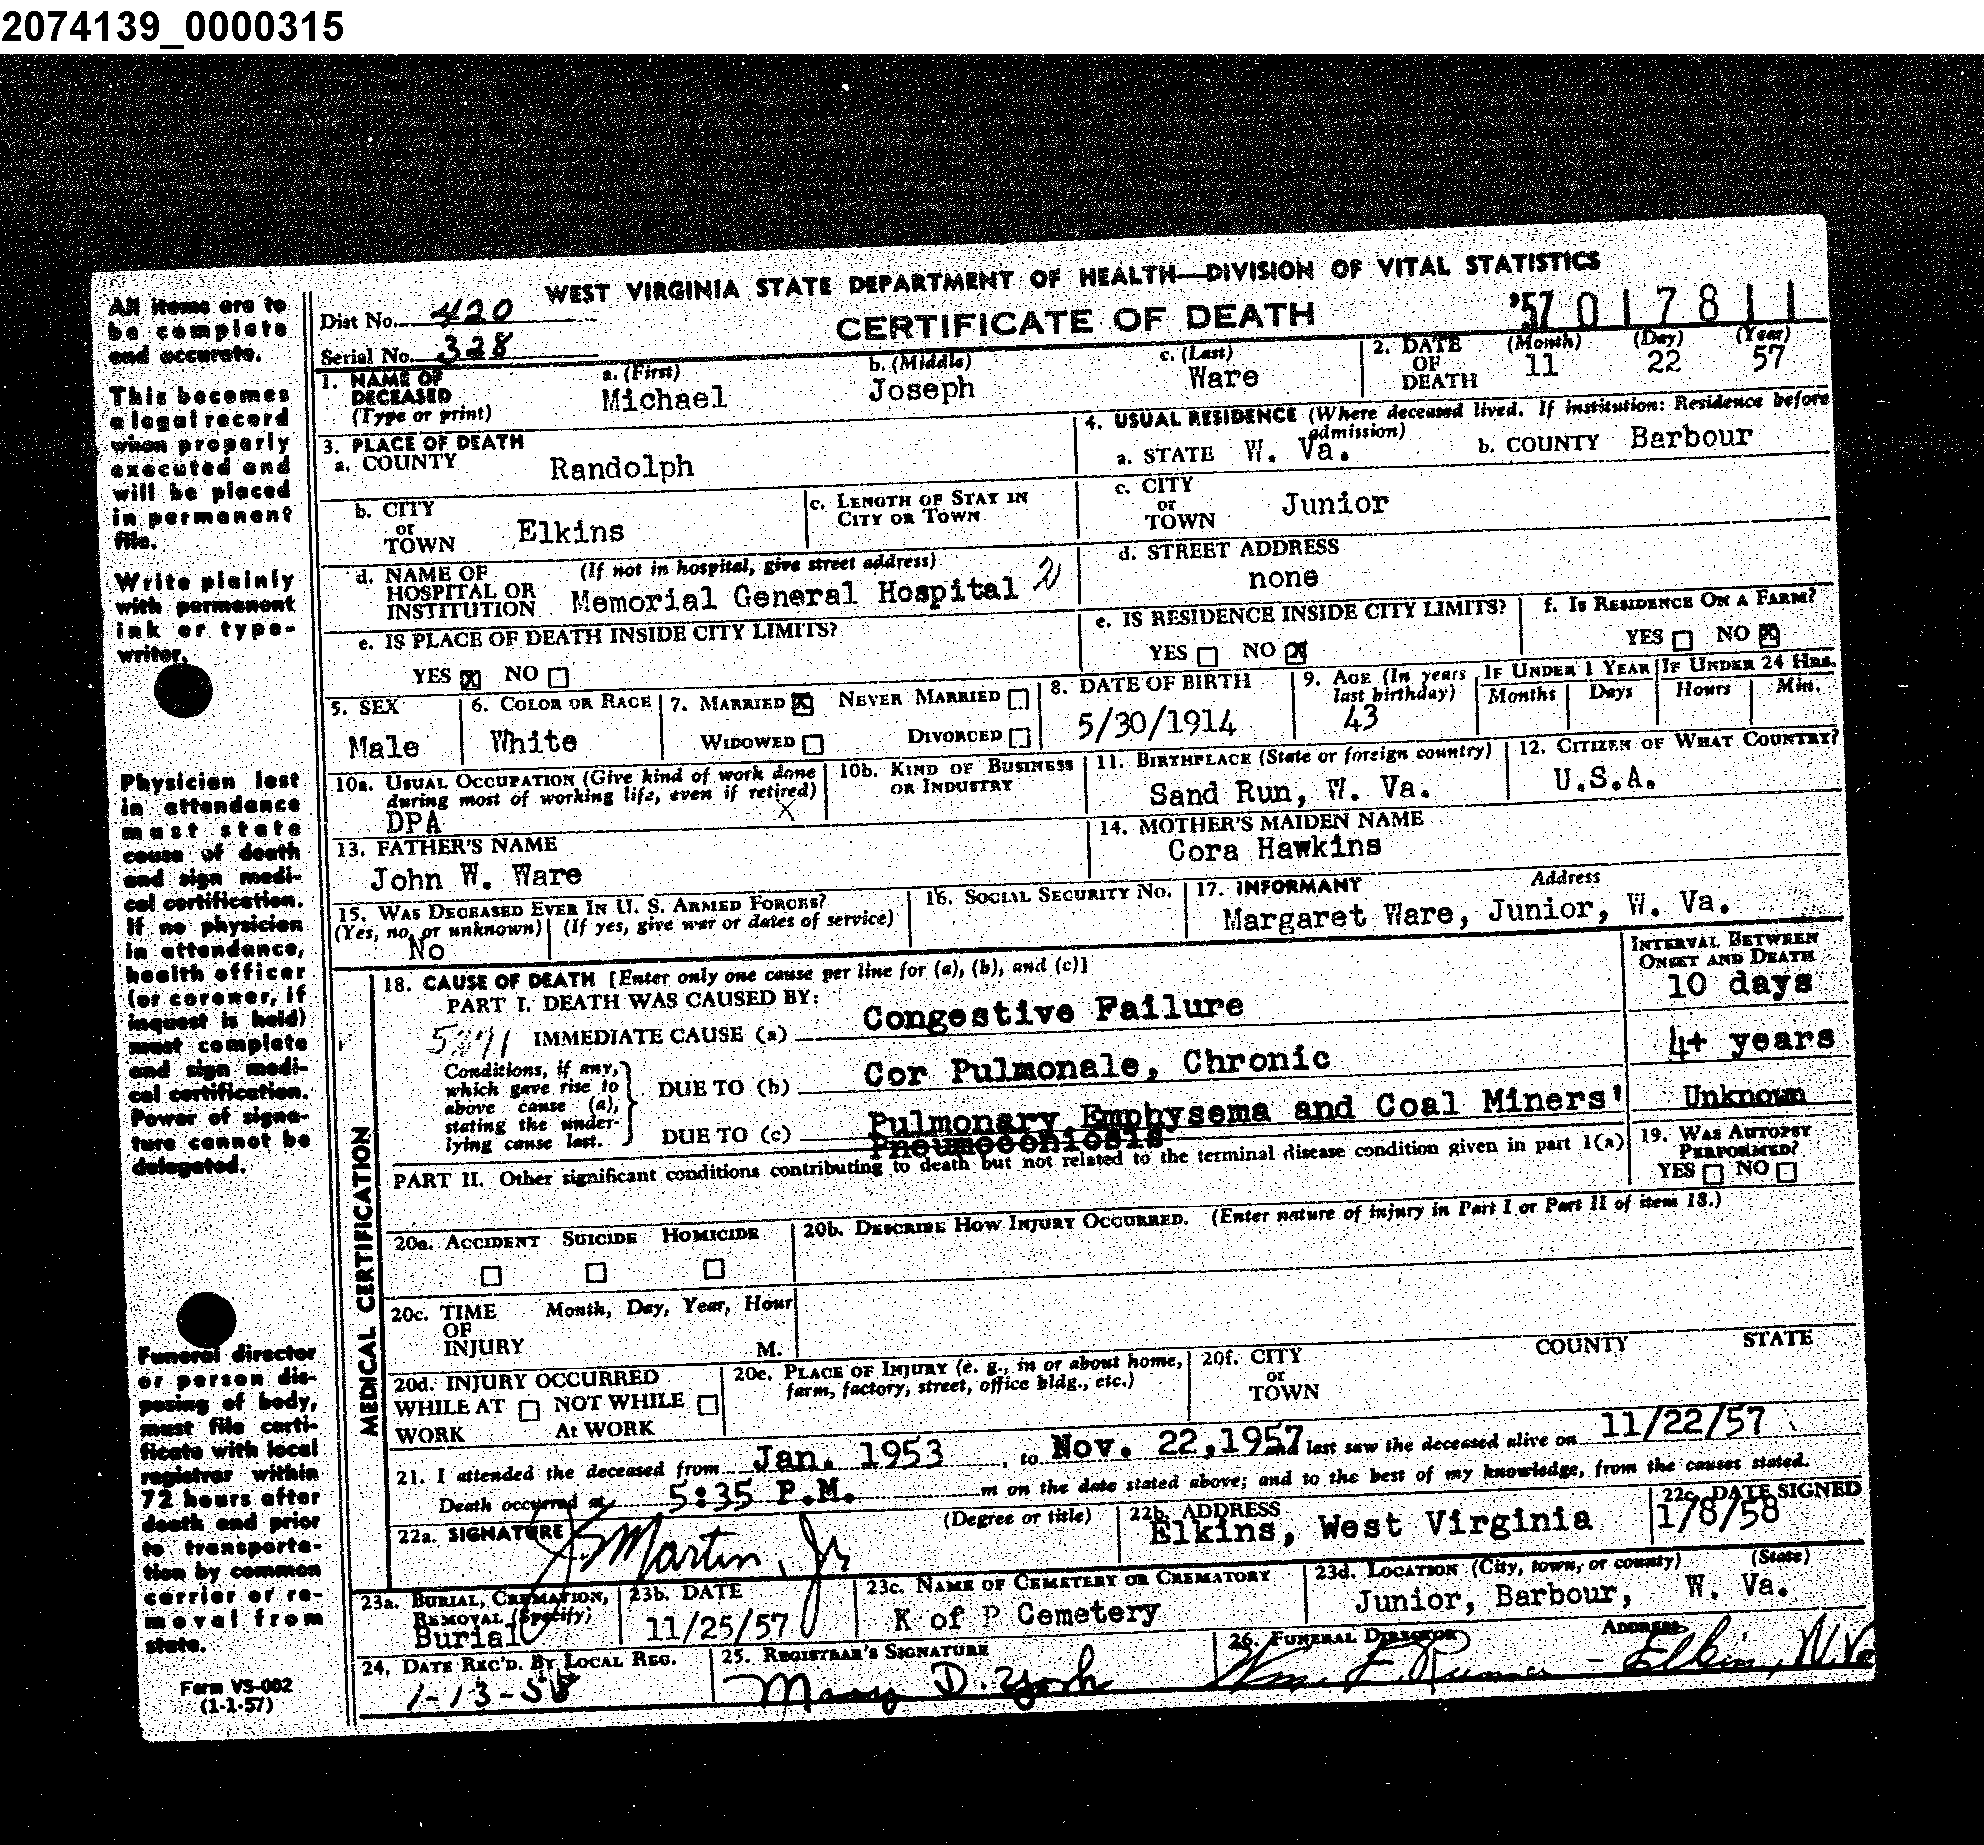 2074139_0000315
WEST VIRGINIA STATE DEPARTMENT OF HEALTH—DIVISION OF VITAL STATISTICS
CERTIFICATE OF DEATH
'57 017811
Dist No. 420
Serial No. 328
All items are to
be complete
and accurate.
This becomes
a legal record
when properly
executed and
will be placed
in permanent
file.
Write plainly
with permanent
ink or type-
writer.
Physician last
in attendance
must state
cause of death
and sign medi-
cal certification.
If no physician
in attendance,
health officer
(or coroner, if
inquest is held)
must complete
and sign medi-
cal certification.
Power of signa-
ture cannot be
delegated.
Funeral director
or person dis-
posing of body,
must file certi-
ficate with local
registrar within
72 hours after
death and prior
to transporta-
tion by common
carrier or re-
moval from
state.
Form VS-002
(1-1-57)
1. NAME OF DECEASED (Type or print) a. (First) Michael b. (Middle) Joseph c. (Last) Ware
2. DATE OF DEATH (Month) 11 (Day) 22 (Year) 57
3. PLACE OF DEATH
a. COUNTY Randolph
4. USUAL RESIDENCE (Where deceased lived. If institution: Residence before admission)
a. STATE W. Va. b. COUNTY Barbour
b. CITY or TOWN Elkins
c. LENGTH OF STAY IN CITY OR TOWN
c. CITY or TOWN Junior
d. NAME OF HOSPITAL OR INSTITUTION (If not in hospital, give street address) Memorial General Hospital 2
d. STREET ADDRESS none
e. IS PLACE OF DEATH INSIDE CITY LIMITS?
YES X NO
e. IS RESIDENCE INSIDE CITY LIMITS?
YES NO X
f. IS RESIDENCE ON A FARM?
YES NO X
5. SEX Male
6. COLOR OR RACE White
7. MARRIED X NEVER MARRIED
WIDOWED DIVORCED
8. DATE OF BIRTH 5/30/1914
9. AGE (In years last birthday) 43
IF UNDER 1 YEAR Months Days
IF UNDER 24 HRS. Hours Min.
10a. USUAL OCCUPATION (Give kind of work done during most of working life, even if retired) X
DPA
10b. KIND OF BUSINESS OR INDUSTRY
11. BIRTHPLACE (State or foreign country) Sand Run, W. Va.
12. CITIZEN OF WHAT COUNTRY? U.S.A.
13. FATHER'S NAME John W. Ware
14. MOTHER'S MAIDEN NAME Cora Hawkins
15. WAS DECEASED EVER IN U. S. ARMED FORCES?
(Yes, no, or unknown) (If yes, give war or dates of service)
No
16. SOCIAL SECURITY NO.
17. INFORMANT Address
Margaret Ware, Junior, W. Va.
MEDICAL CERTIFICATION
18. CAUSE OF DEATH [Enter only one cause per line for (a), (b), and (c)]
INTERVAL BETWEEN ONSET AND DEATH
PART I. DEATH WAS CAUSED BY:
IMMEDIATE CAUSE (a) Congestive Failure 10 days
Conditions, if any, which gave rise to above cause (a), stating the underlying cause last.
DUE TO (b) Cor Pulmonale, Chronic 4+ years
DUE TO (c) Pulmonary Emphysema and Coal Miners' Unknown
Pneumoconiosis
PART II. Other significant conditions contributing to death but not related to the terminal disease condition given in part I(a)
19. WAS AUTOPSY PERFORMED?
YES NO
20a. ACCIDENT SUICIDE HOMICIDE
20b. DESCRIBE HOW INJURY OCCURRED. (Enter nature of injury in Part I or Part II of item 18.)
20c. TIME OF INJURY Month, Day, Year, Hour M.
20d. INJURY OCCURRED
WHILE AT WORK NOT WHILE At WORK
20e. PLACE OF INJURY (e. g., in or about home, farm, factory, street, office bldg., etc.)
20f. CITY or TOWN COUNTY STATE
21. I attended the deceased from Jan. 1953, to Nov. 22,1957 and last saw the deceased alive on 11/22/57
Death occurred at 5:35 P.M. m on the date stated above; and to the best of my knowledge, from the causes stated.
22a. SIGNATURE (Degree or title) Martin, Jr
22b. ADDRESS Elkins, West Virginia
22c. DATE SIGNED 1/8/58
23a. BURIAL, CREMATION, REMOVAL (Specify) Burial
23b. DATE 11/25/57
23c. NAME OF CEMETERY OR CREMATORY K of P Cemetery
23d. LOCATION (City, town, or county) (State)
Junior, Barbour, W. Va.
24. DATE REC'D. BY LOCAL REG. 1-13-58
25. REGISTRAR'S SIGNATURE Mary D. York
26. FUNERAL DIRECTOR ADDRESS
Wm. F. Runner - Elkins, W. Va